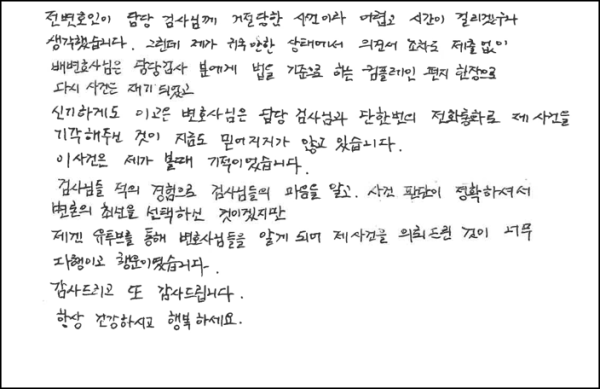 전변호인이 담당 검사님께 거절당한 사건이라 어렵고 시간이 걸리겠구나
생각했습니다. 그런데 제가 귀국 안한 상태에서 의견서 조차도 제출없이
배변호사님은 담당검사 분에게 법을 기준으로 하는 컴플레인 편지 한장으로
다시 사건은 재기 되었고
신기하게도 이고은 변호사님은 담당 검사님과 단한번의 전화통화로 제 사건을
기각해주신 것이 지금도 믿어지지가 않고 있습니다.
이사건은 제가 볼때 기적이었습니다.
검사님들 적의 경험으로 검사님들의 마음을 알고. 사건 판단이 정확하셔서
변호의 최선을 선택하신 것이겠지만
제겐 유투브를 통해 변호사님들을 알게 되며 제사건을 의뢰드린 것이 너무
다행이고 행운이였습니다.
감사드리고 또 감사드립니다.
항상 건강하시고 행복하세요.